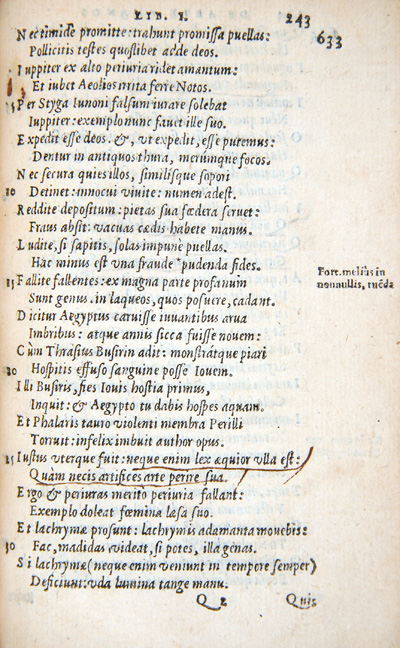 LIB. I. 243
633
Nec timidè promitte: trahunt promissa puellas:
Pollicitis testes quoslibet adde deos.
Iuppiter ex alto periuria ridet amantum:
Et iubet Aeolios irrita ferre Notos.
5 Per Styga Iunoni falsum iurare solebat
Iuppiter: exemplo nunc fauet ille suo.
Expedit esse deos. &, vt expedit, esse putemus:
Dentur in antiquos thura, merúmque focos.
Nec secura quies illos, similisque sopori
10 Detinet: innocui viuite: numen adest.
Reddite depositum: pietas sua fœdera seruet:
Fraus absit: vacuas cædis habete manus.
Ludite, si sapitis, solas impunè puellas.
Hac minus est vna fraude *pudenda fides.
Fort. meliùs in
nonnullis, tuēda
15 Fallite fallentes: ex magna parte profanum
Sunt genus. in laqueos, quos posuere, cadant.
Dicitur Aegyptus caruisse iuuantibus arua
Imbribus: atque annis sicca fuisse nouem:
Cùm Thrasius Busirin adit: monstrátque piari
20 Hospitis effuso sanguine posse Iouem.
Illi Busiris, fies Iouis hostia primus,
Inquit: & Aegypto tu dabis hospes aquam.
Et Phalaris tauro violenti membra Perilli
Torruit: infelix imbuit author opus.
25 Iustus vterque fuit: neque enim lex æquior vlla est:
Quàm necis artifices arte perire sua.
Ergo & periuras meritò periuria fallant:
Exemplo doleat fœmina læsa suo.
Et lachrymæ prosunt: lachrymis adamanta mouebis:
30 Fac, madidas videat, si potes, illa genas.
Si lachrymæ (neque enim veniunt in tempore semper)
Deficiunt: vda lumina tange manu.
Q 2 Quis